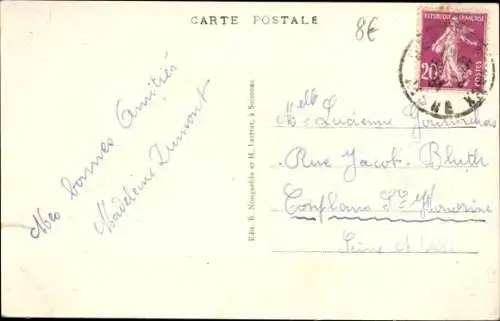 CARTE POSTALE
8€
REPUBLIQUE FRANÇAISE
20c
POSTES
Mes bonnes Amitiés
Madeleine Dumont
Edit. R. Nougarède et H. Lautrat, à Soissons
Melle Lucienne
Rue Jacob Bluth
Conflans Ste Honorine
Seine et Oise